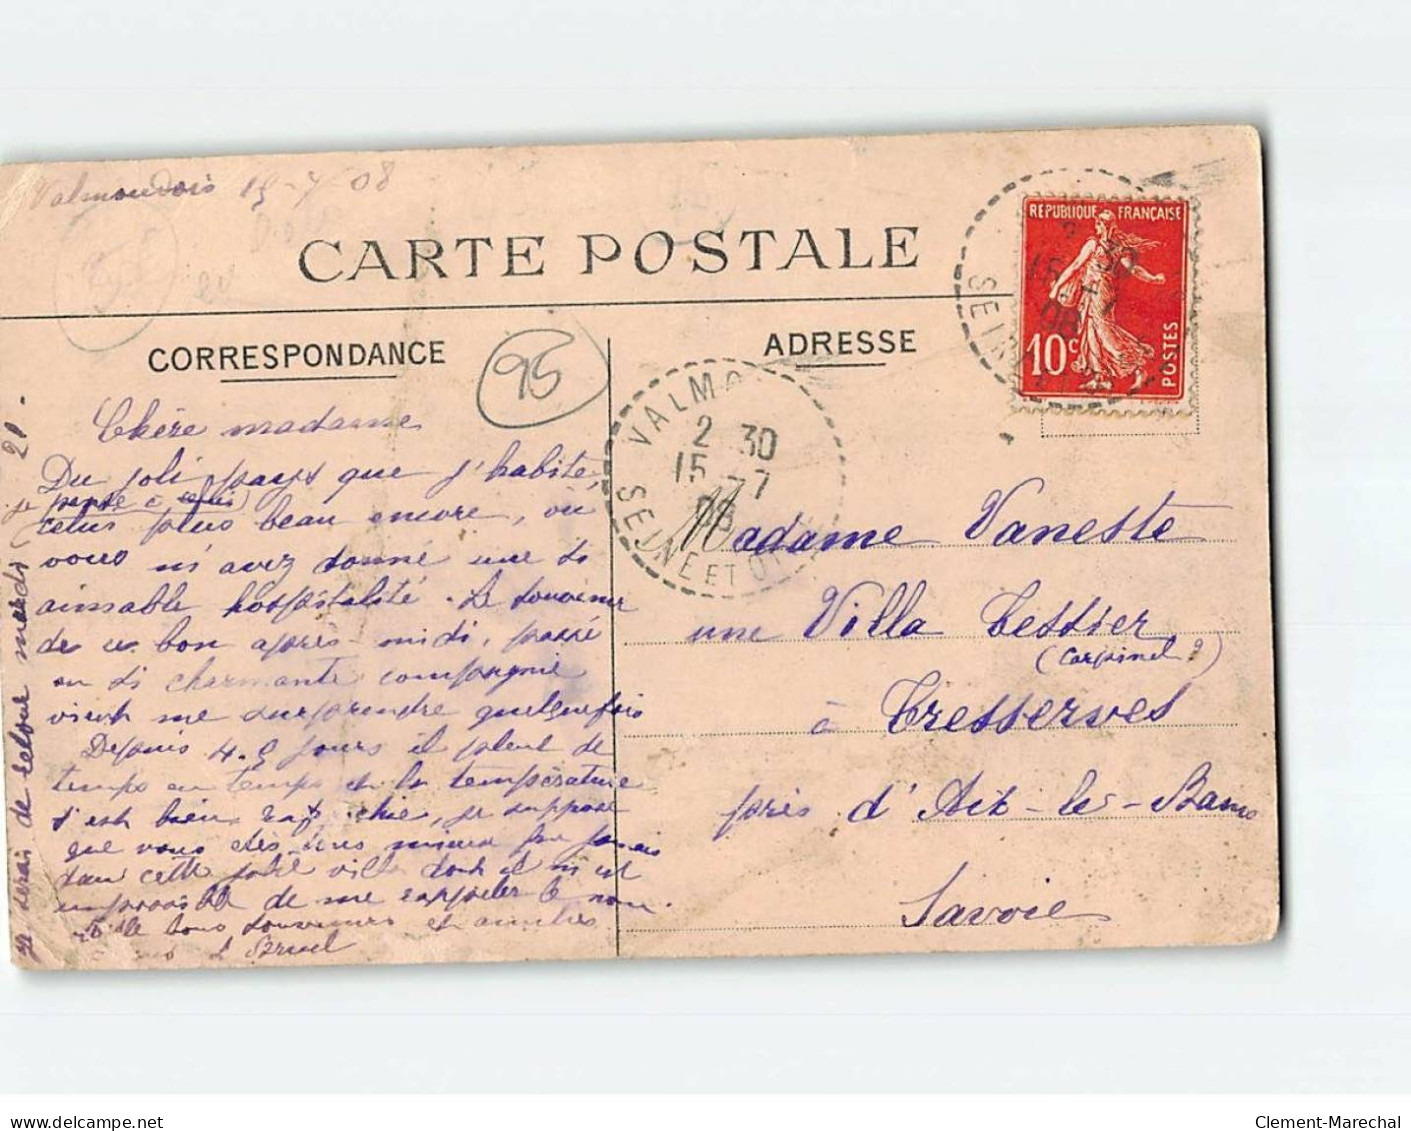 Valmondois 15-7 08
CARTE POSTALE
CORRESPONDANCE
95
ADRESSE
REPUBLIQUE FRANÇAISE
10c
POSTES
VALMO
2 30
15 -7
08
SEINE ET OI
15
30
08
SEINE
Chère madame
Du joli pays que j'habite,
je pense à celui
celui plus beau encore, où
vous m'avez donné une si
aimable hospitalité. Le souvenir
de ce bon après-midi, passé
en si charmante compagnie
vient me surprendre quelquefois
Depuis 4-5 jours il pleut de
temps en temps et la température
s'est bien rafraichie, je suppose
que vous êtes mieux que jamais
dans cette jolie villa dont il m'est
impossible de me rappeler le nom.
bons souvenirs et amitiés
Bruel
Je serai de retour mardi 21.
Madame Vaneste
une Villa Tessier
(Carpinel?)
à Tresserves
près d'Aix-les-Bains
Savoie
delcampe.net
Clement-Marechal